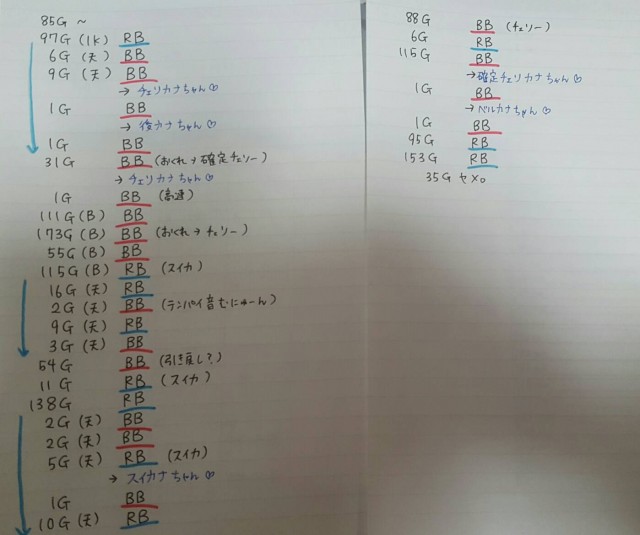 85G ~
97G (1K) RB
6G (天) BB
9G (天) BB
→ チェリカナちゃん♡
1G BB
→ 後カナちゃん♡
1G BB
31G BB (おくれ→確定チェリー)
→ チェリカナちゃん♡
1G BB (高速)
111G (B) BB
173G (B) BB (おくれ→チェリー)
55G (B) BB
115G (B) RB (スイカ)
16G (天) RB
2G (天) BB (テンパイ音むにゅーん)
9G (天) RB
3G (天) BB
54G BB (引き戻し?)
11G RB (スイカ)
138G RB
2G (天) BB
2G (天) BB
5G (天) RB (スイカ)
→ スイカナちゃん♡
1G BB
10G (天) RB
88G BB (チェリー)
6G RB
115G BB
→確定チェリカナちゃん♡
1G BB
→ベルカナちゃん♡
1G BB
95G RB
153G RB
35G ヤメ。